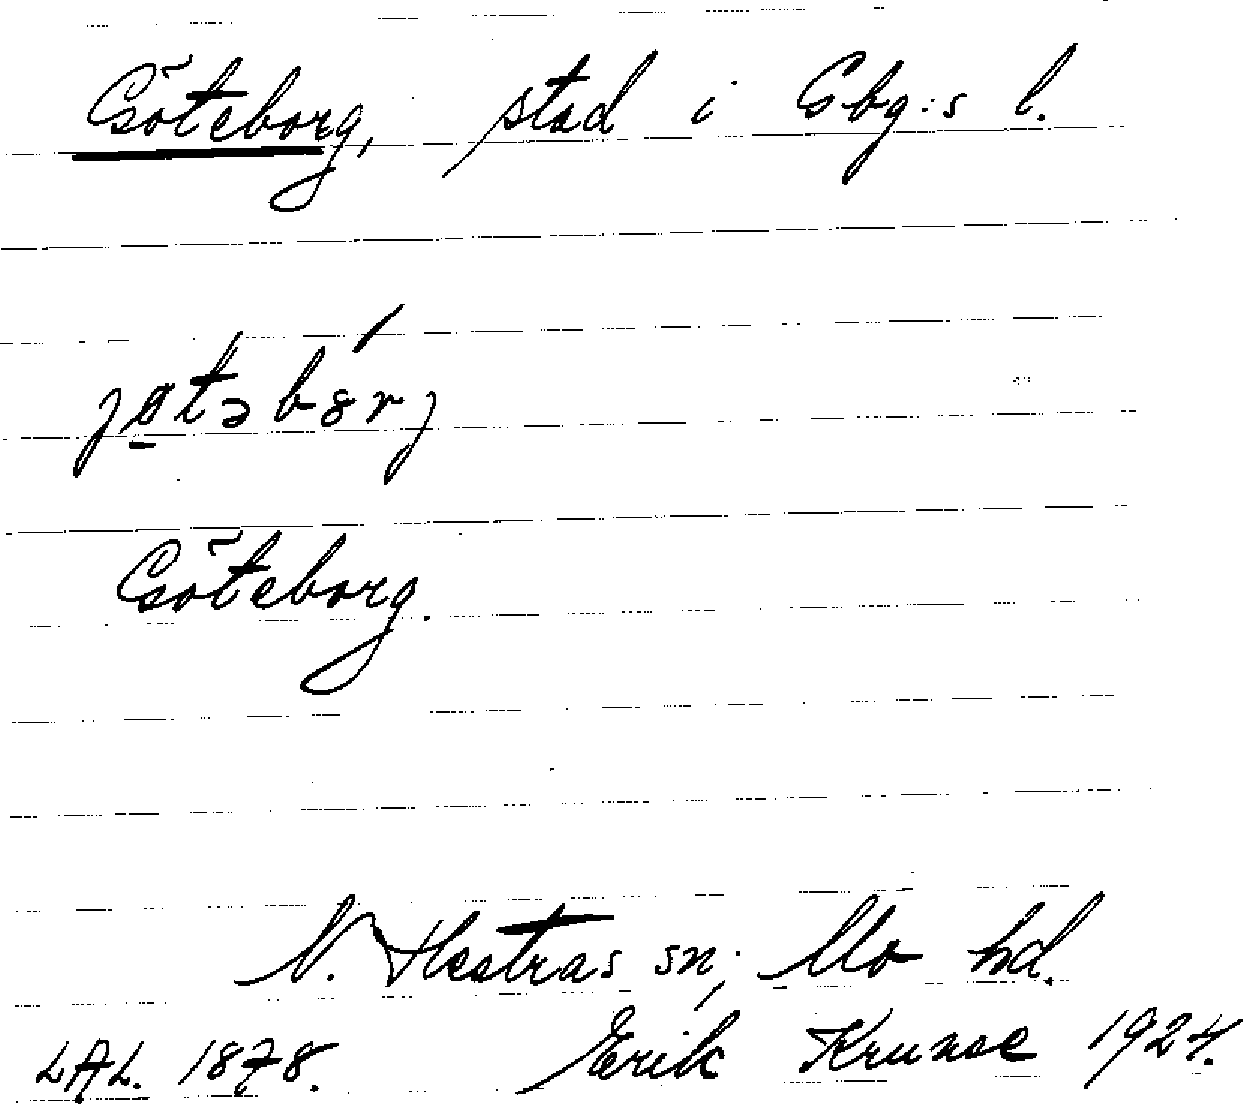 Göteborg, stad i Gbg:s l.
jøtəbȣrj
Göteborg.
N. Hestras sn, Mo hd.
LAL. 1878. Erik Krunoe 1924.